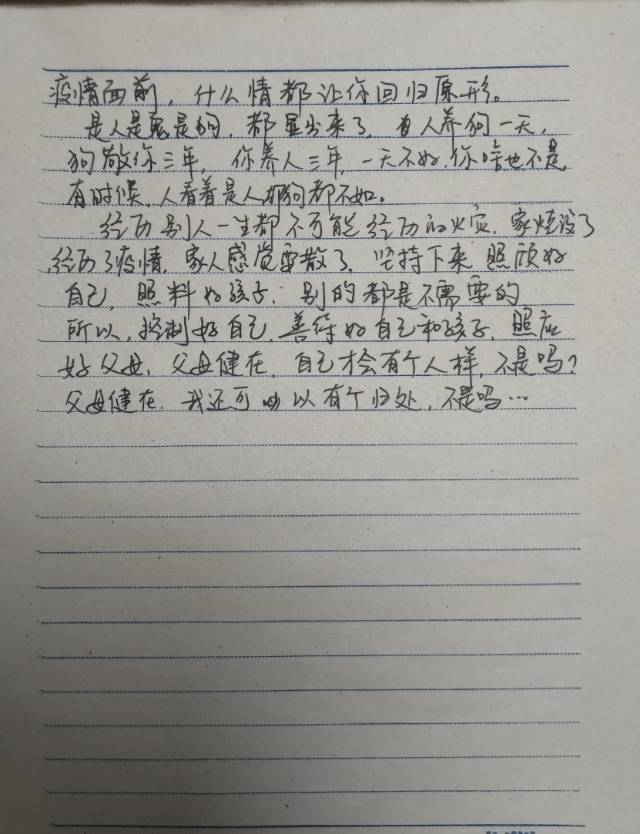 疫情面前，什么情都让你回归原形。
是人是鬼是狗，都显出来了，当人养狗一天，
狗敬你三年，你养人三年，一天不好，你啥也不是
有时候，人看着是人却狗都不如。
经历别人一生都不可能经历的火灾，家烧没了
经历了疫情，家人感觉要散了，坚持下来，照顾好
自己，照料好孩子，别的都是不需要的
所以，控制好自己，善待好自己和孩子，照应
好父母，父母健在，自己才会有个人样，不是吗？
父母健在，我还可以有个归处，不是吗…